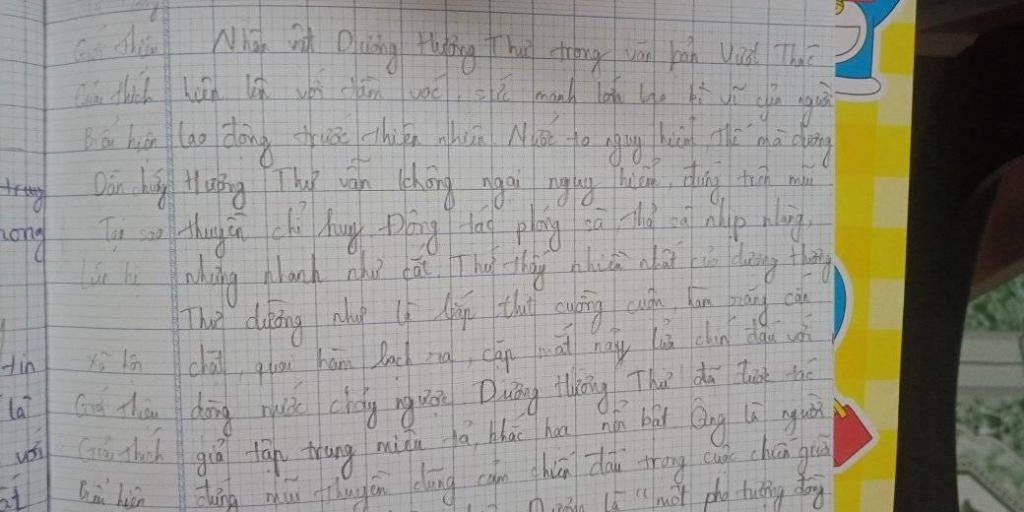 Giới thiệu Nhân vật Dương Hương Thư trong văn bản Vượt Thác
Giải thích hiện lên với tầm vóc, sức manh lớn lao kì vĩ của người
Biểu hiện lao động trước thiên nhiên. Nước to nguy hiểm thế mà dương
trung Dẫn chứng Hương Thư vẫn không ngại nguy hiểm, đứng trên mũi
rong Tại sao thuyền chỉ huy. Động tác phóng sà, thả sà nhịp nhàng,
những nhanh như cắt. Thư thấy nhiều nhất của dương hương
Thư dường như là bắp thịt cuồng cuộn, hàm răng cắn
tin chặt, quai hàm bạch ra, cặp mắt nảy lửa chiến đấu với
là Giới thiệu dòng nước chảy ngược. Dương Hương Thư đã được tác
với Giải thích giả tập trung miêu tả, khắc hoạ nổi bật. Ông là người
Biểu hiện đứng mũi thuyền dũng cảm chiến đấu trong cuộc chiến giữa
là "một pho tượng đồng